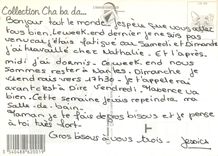 Collection Cha ba da...
Bonjour tout le monde, j'espère que vous allez
tous bien. Le week.end dernier je ne suis pas
venue car j'étais fatiguée car Samedi et Dimanche
j'ai travaillé chez Nathalie. Et l'après.
midi j'ai dormis. Ce week.end nous
sommes rester à Nantes. Dimanche
vient vers 17h30. je t'appelerai
avant c'est à Dire Vendredi. Maxence va
bien. Cette semaine je vais repeindre ma
Salle de bain.
Maman je te fais de gros bisous et je pense
à toi très fort.
Gros bisous à vous trois. Jessica